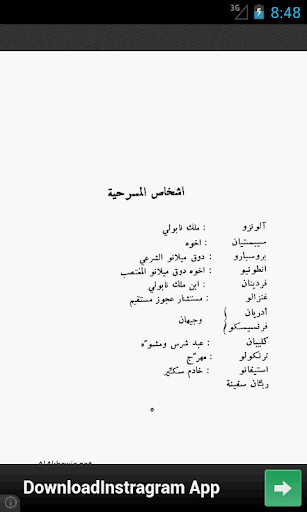 3G 8:48
اشخاص المسرحية
آلونزو : ملك نابولي
سيبستيان : اخوه
بروسبارو : دوق ميلانو الشرعي
انطونيو : اخوه دوق ميلانو المغتصب
فردينان : ابن ملك نابولي
غنزالو : مستشار عجوز مستقيم
أدريان
فرنسيسكو } وجيهان
كليبان : عبد شرس ومشوّه
ترنكولو : مهرّج
استيفانو : خادم سكّير
ربّان سفينة
٥
DownloadInstragram App